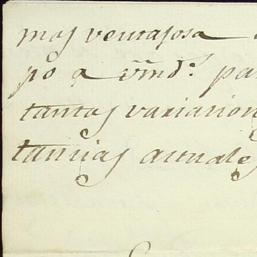 mas ventajosa
po a vmd.s pa
tantas variacion
tancias actuales